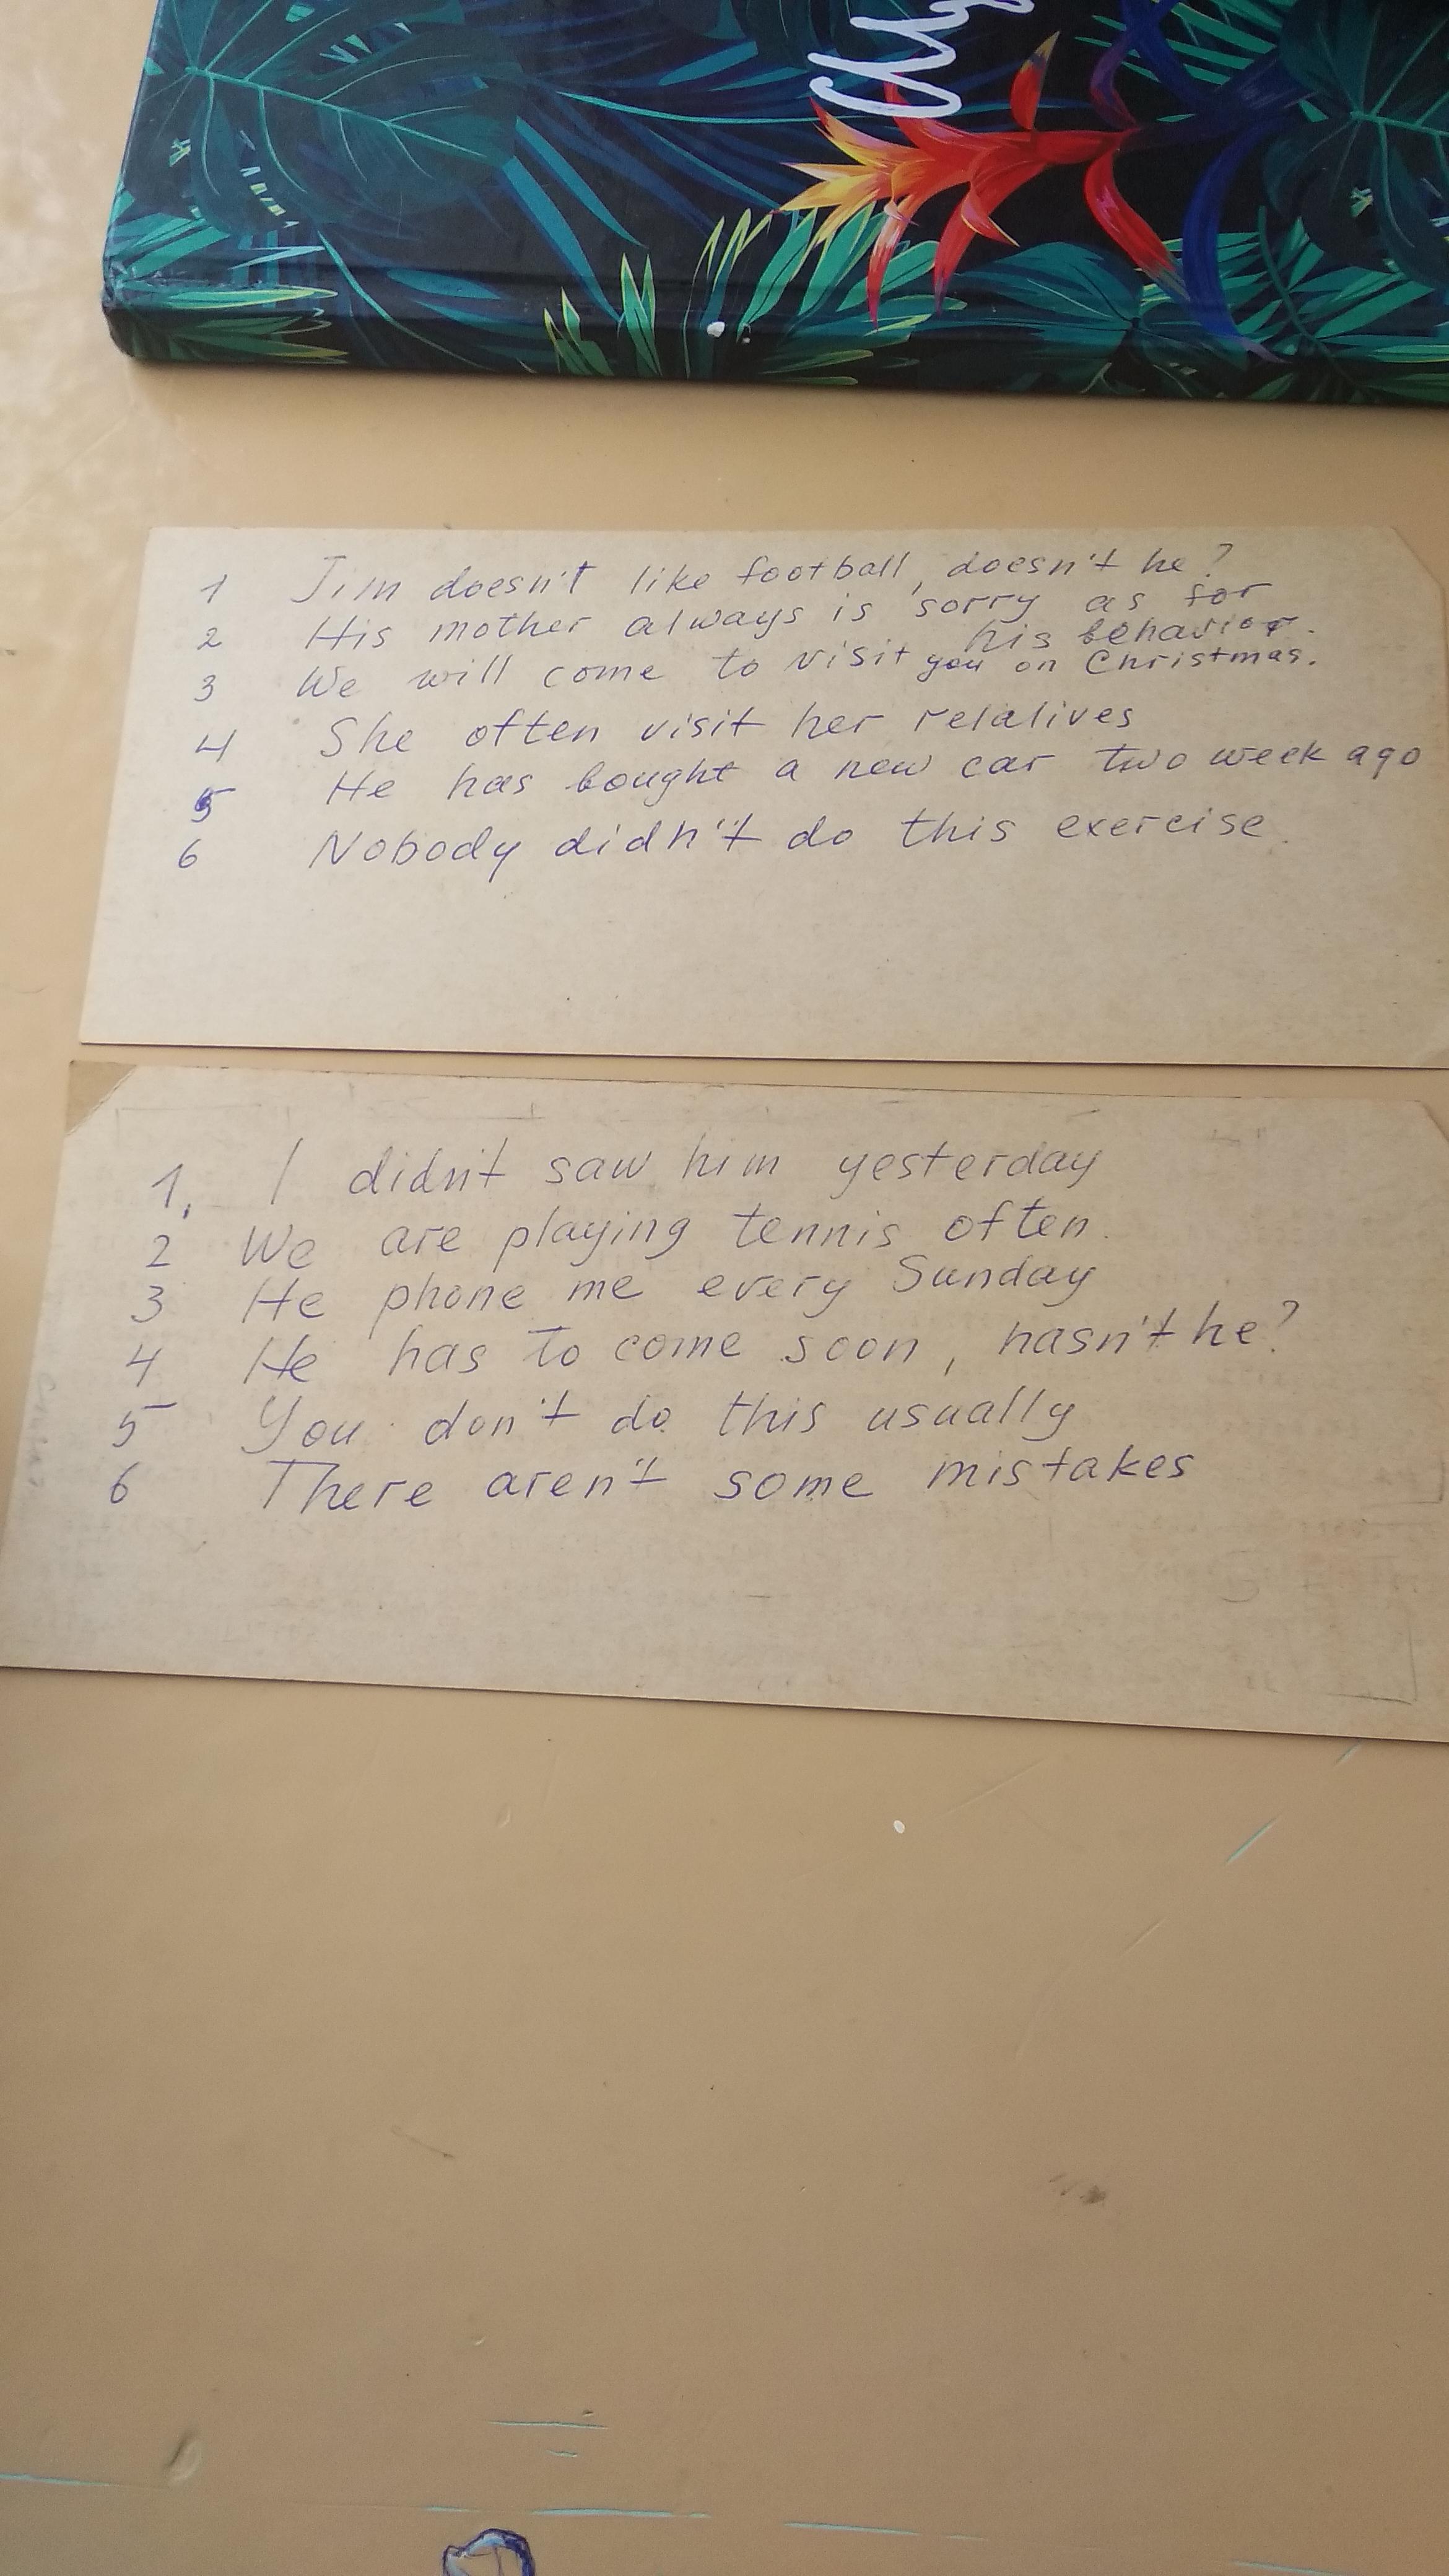 1 Jim doesn't like football, doesn't he?
2 His mother always is sorry as for
his behavior.
3 We will come to visit you on Christmas.
4 She often visit her relalives
5 He has bought a new car two week ago
6 Nobody didn't do this exercise.
1. I didn't saw him yesterday
2 We are playing tennis often.
3 He phone me every Sunday
4 He has to come soon, hasn't he?
5 You don't do this usually
6 There aren't some mistakes